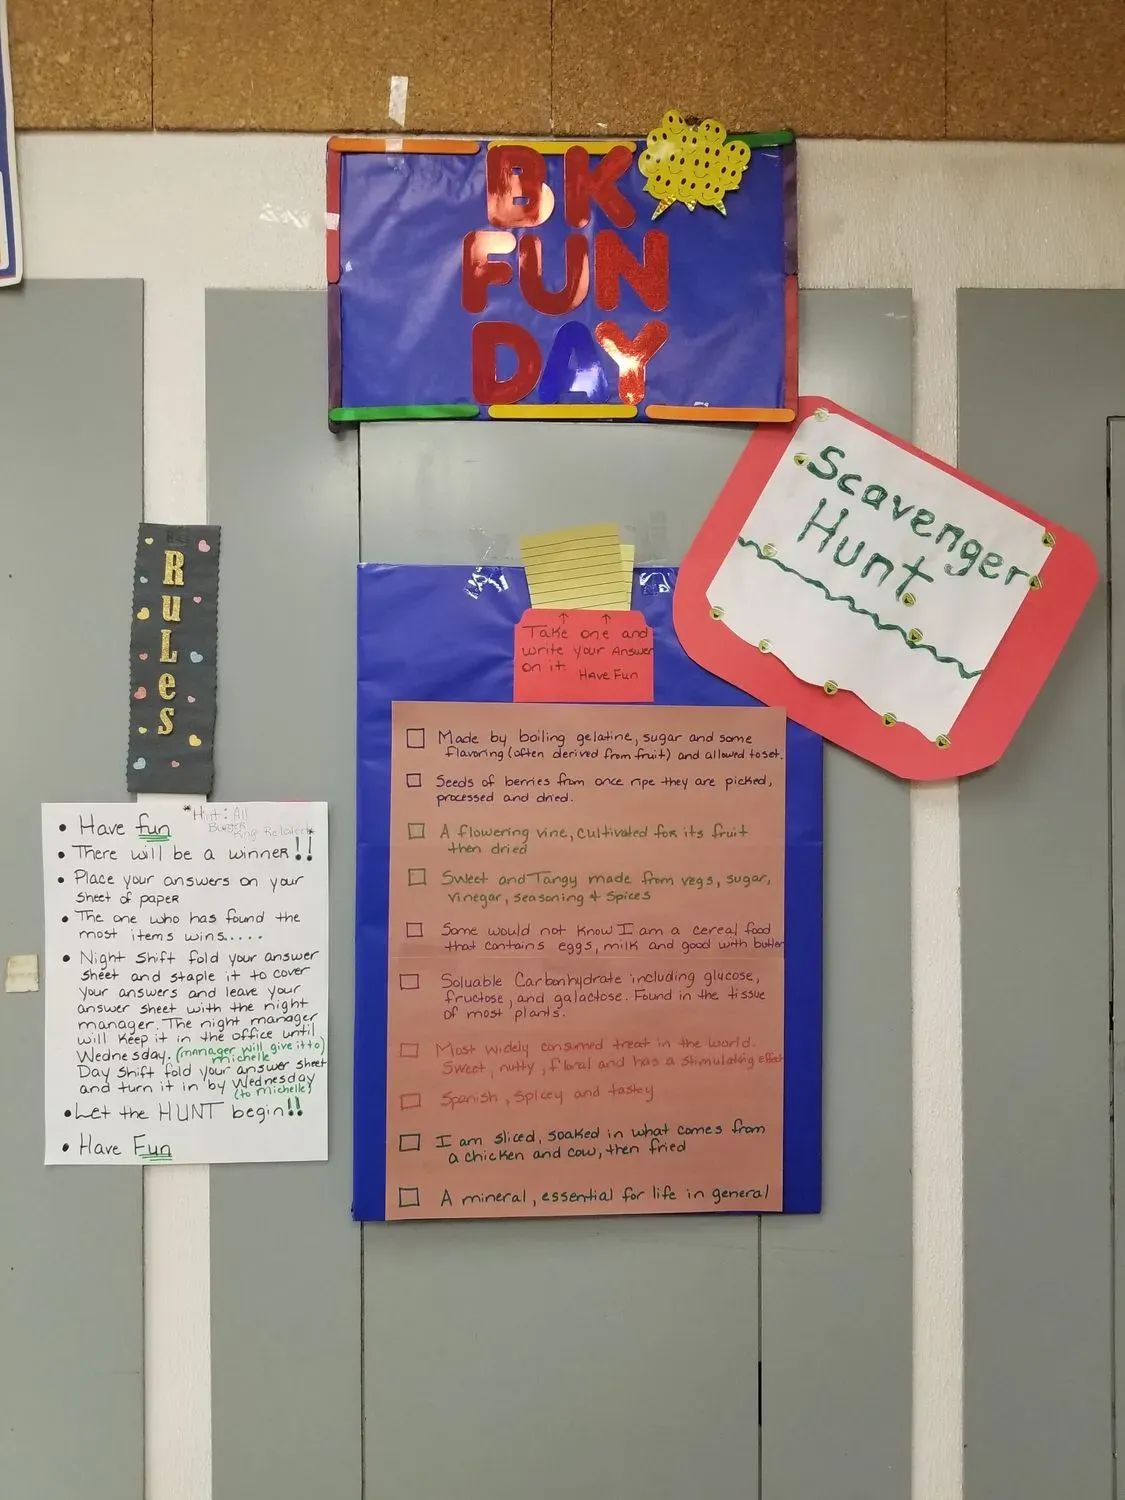 BK
FUN
DAY
Scavenger
Hunt
Rules
Take one and
write your Answer
on it.
Have Fun
• Have fun
*Hint: All
Burger
King Related*
• There will be a winner!!
• Place your answers on your
sheet of paper
• The one who has found the
most items wins.....
• Night shift fold your answer
sheet and staple it to cover
your answers and leave your
answer sheet with the night
manager. The night manager
will keep it in the office until
Wednesday. (manager will give it to)
michelle
Day Shift fold your answer sheet
and turn it in by Wednesday
(to michelle)
• Let the HUNT begin!!
• Have Fun
Made by boiling gelatine, sugar and some
flavoring (often derived from fruit) and allowed to set.
Seeds of berries from once ripe they are picked,
processed and dried.
A flowering vine, cultivated for its fruit
then dried
Sweet and Tangy made from vegs, sugar,
vinegar, seasoning & spices
Some would not know I am a cereal food
that contains eggs, milk and good with butter
Soluable Carbonhydrate including glucose,
fructose, and galactose. Found in the tissue
of most plants.
Most widely consumed treat in the world.
Sweet, nutty, floral and has a stimulating effect
Spanish, Spicey and tastey
I am sliced, soaked in what comes from
a chicken and cow, then fried
A mineral, essential for life in general